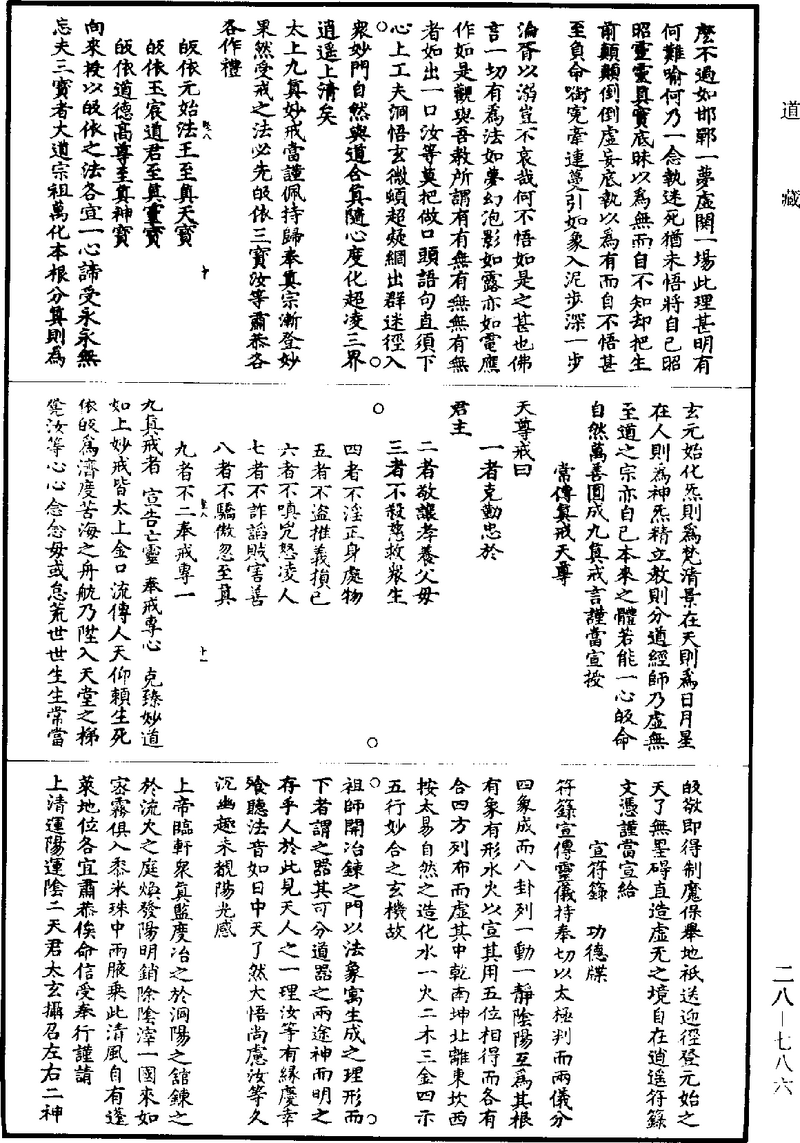 道藏
麽不過如邯鄲一夢虛閱一場此理甚明有
何難喻何乃一念執迷死猶未悟將自己昭
昭靈靈真實底昧以為無而自不知却把生
前顛顛倒倒虛妄底執以為有而自不悟甚
至負命啣寃牽連蔓引如象入泥步深一步
淪胥以溺豈不哀哉何不悟如是之甚也佛
言一切有為法如夢幻泡影如露亦如電應
作如是觀與吾教所謂有有無有無無有無
者如出一口汝等莫把做口頭語句直須下
心上工夫洞悟玄微頓超凝網出群迷徑入
衆妙門自然與道合真隨心度化超凌三界
逍遥上清矣
太上九真妙戒當謹佩持歸奉真宗漸登妙
果然受戒之法必先皈依三寶汝等肅恭各
各作禮
皈依元始法王至真天寶
皈依玉宸道君至真靈寶
皈依道德髙尊至真神寶
向來授以皈依之法各宜一心諦受永永無
忘夫三寳者大道宗祖萬化本根分真則為
玄元始化炁則為梵清景在天則為日月星
在人則為神炁精立教則分道經師乃虛無
至道之宗亦自己本來之體若能一心皈命
自然萬善圓成九真戒言謹當宣授
常傳真戒天尊
天尊戒曰
一者克勤忠於
君主
二者敬讓孝養父母
三者不殺慈救衆生
四者不淫正身處物
五者不盜推義損己
六者不嗔兇怒凌人
七者不詐謟賊害善
八者不驕傲忽至真
九者不二奉戒專一
九真戒者 宣告亡靈 奉戒專心 克臻妙道
如上妙戒皆太上金口流傳人天仰賴生死
依皈為濟度苦海之舟航乃陞入天堂之梯
凳汝等心心念念毋或怠荒世世生生常當
皈敬即得制魔保舉地祇送迎徑登元始之
天了無罣碍直造虛无之境自在逍遥符籙
文憑謹當宣給
宣符籙 功德牒
符籙宣傳靈儀持奉切以太極判而兩儀分
四象成而八卦列一動一靜陰陽互為其根
有象有形水火以宣其用五位相得而各有
合四方列布而虛其中乾南坤北離東坎西
按太易自然之造化水一火二木三金四示
五行妙合之玄機故
祖師開冶鍊之門以法象寓生成之理形而
下者謂之器其可分道器之兩途神而明之
存乎人於此見天人之一理汝等有緣慶幸
飡聽法音如日中天了然大悟尚慮汝等久
沉幽趣未覩陽光感
上帝臨軒衆真監度冶之於洞陽之舘鍊之
於流火之庭煥發陽明銷除陰滓一國來如
宻霧俱入黍米珠中兩腋乘此清風自有蓬
萊地位各宜肅恭俟命信受奉行謹請
上清運陽運陰二天君太玄攝召左右二神
二八—七八六